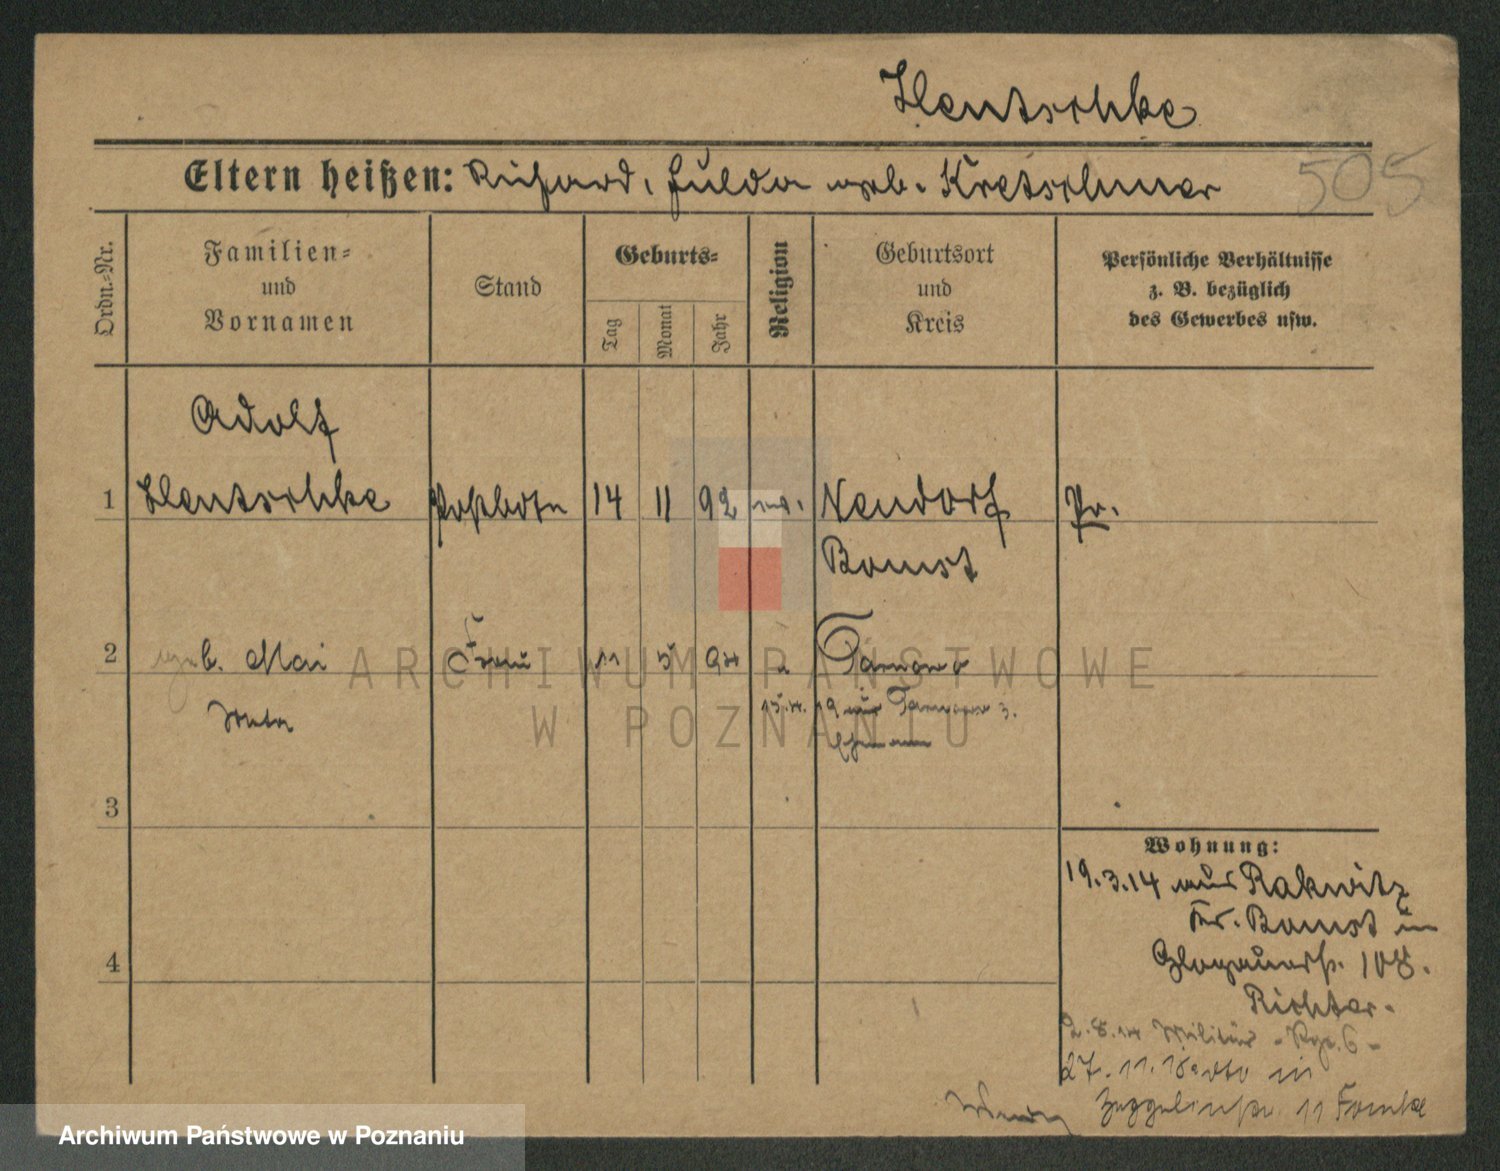 Hentschke
505
Eltern heißen: Richard, Hulda geb. Kretschmer
Ordn.-Nr.
Familien-
und
Vornamen
Stand
Geburts-
Tag
Monat
Jahr
Religion
Geburtsort
und
Kreis
Persönliche Verhältnisse
z. B. bezüglich
des Gewerbes usw.
Adolf
1 Hentschke Postbote 14 11 92 ev. Neudorf Pr.
Bomst
2 geb. Mai Frau 11 5 94 Tarnowo
15.4.19 aus Tarnowo z.
Meta Ehemann
3
4
Wohnung:
19.3.14 aus Rakwitz
Kr. Bomst in
Glogauerstr. 108.
Richter.
2.8.14 Militär - Rgt. 6 -
27.11.18 dto in
11
ARCHIWUM PAŃSTWOWE
W POZNANIU
Archiwum Państwowe w Poznaniu